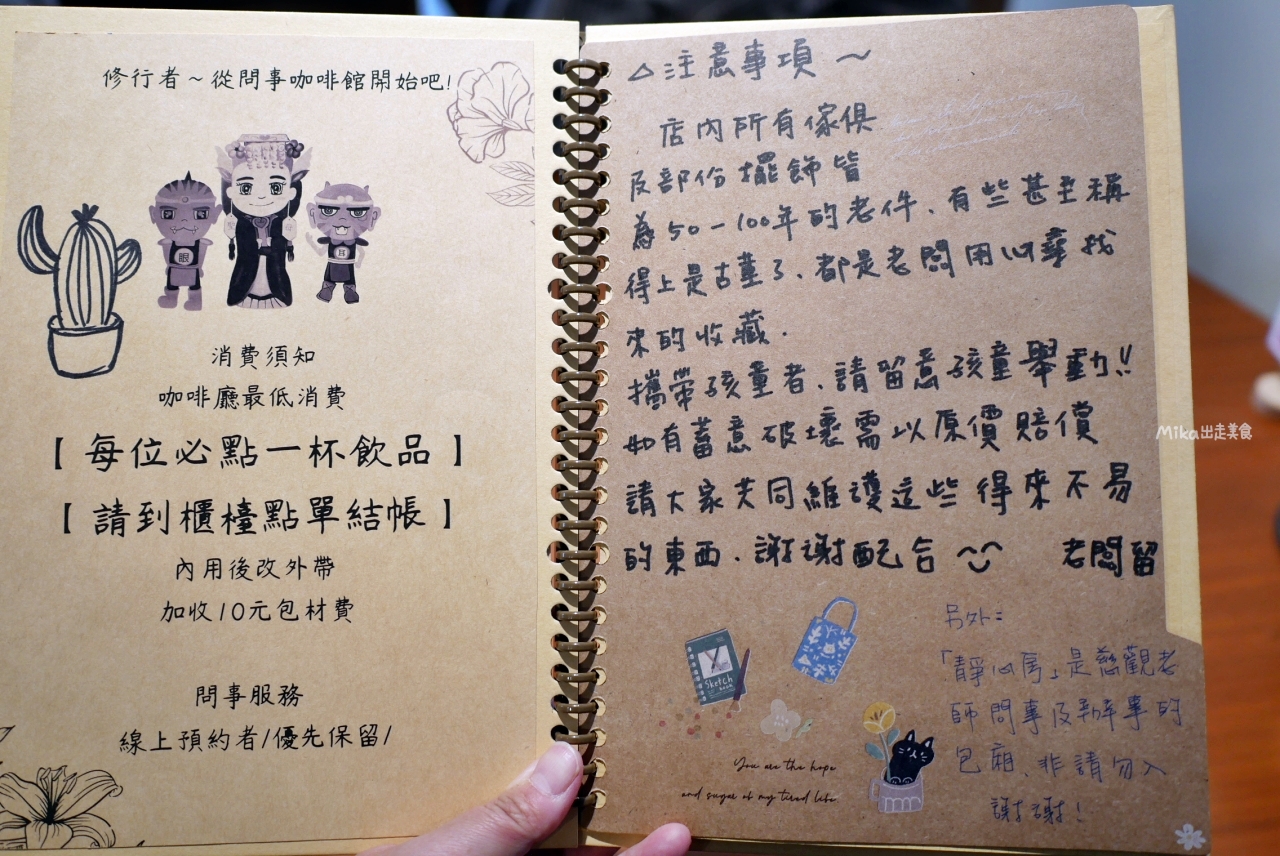 修行者～從問事咖啡館開始吧!
眼
耳
消費須知
咖啡廳最低消費
【 每位必點一杯飲品 】
【 請到櫃檯點單結帳 】
內用後改外帶
加收10元包材費
問事服務
線上預約者/優先保留/
△注意事項～
店內所有傢俱
及部份擺飾皆
為50－100年的老件、有些甚至稱
得上是古董了、都是老闆用心尋找
來的收藏.
攜帶孩童者、請留意孩童舉動!!
如有蓄意破壞需以原價賠償
請大家共同維護這些得來不易
的東西、謝謝配合 老闆留
另外:
「靜心房」是慈觀老
師問事及辦事的
包廂、非請勿入
謝謝!
Sketch
BOOK
You are the hope
and sugar of my tired life.
Mika出走美食